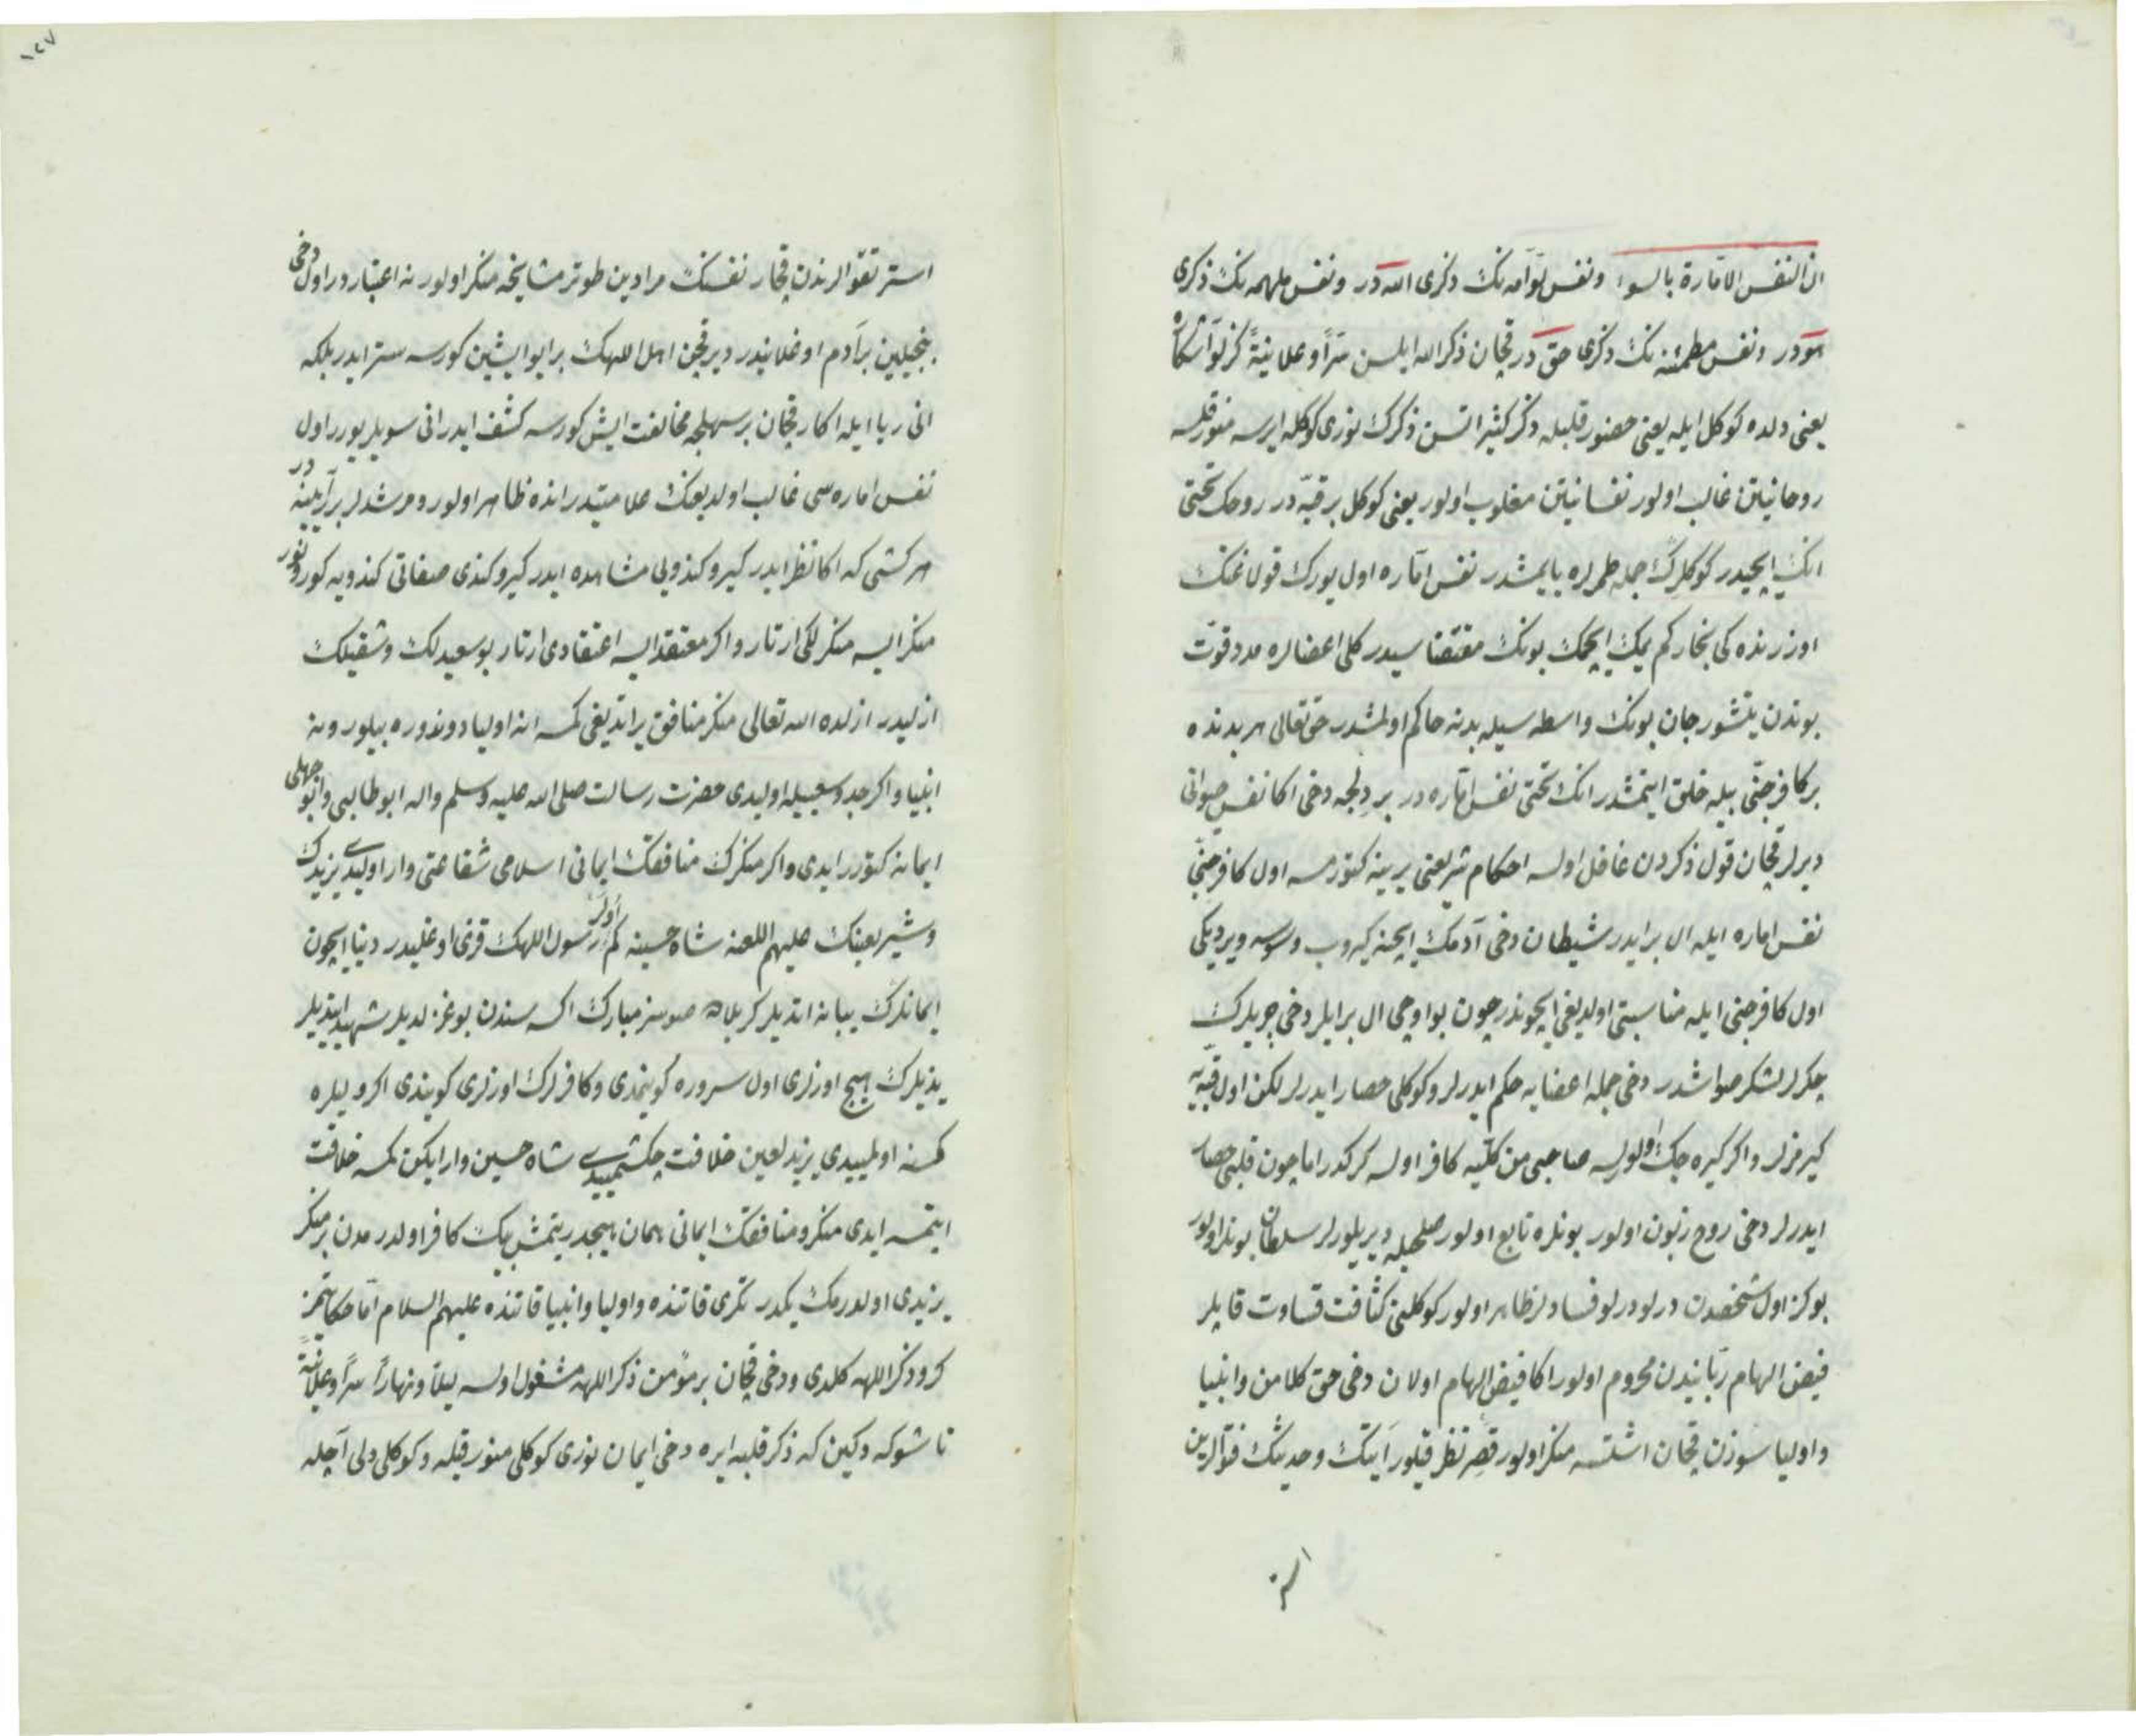 ان النفس الامارة بالسوء ونفس لوّامه نك ذكرى الله در ونفس ملهمه نك ذكرى
هو در ونفس مطمئنه نك ذكرى حق در قچان ذكر الله ايلسن سرّاً وعلانيةً
يعنى دلده كوكل ايله يعنى حضور قلبله ذكر كثير اتسن ذكرك نورى كوكله ايرسه منور قلسه
روحانيتن غالب اولور نفسانيتن مغلوب اولور يعنى كوكل بر قبّه در روحك تختى
انك ايچيدر كوكلرك جمله طمرلره يايمشدر نفس امّاره اول يورك
اوزرنده كى بخار كم يمك ايچمك بونك مقتضا سيدر كلى اعضالره مدد قوّت
بوندن يتشور جان بونك واسطه سيله بدنه حاكم اولمشدر حق تعالى هر بدنده
بر كافر جنّى بيله خلق ايتمشدر انك تختى نفس امّاره در بر دلجه دخى اكا نفس حيوانى
ديرلر قچان قول ذكردن غافل اولسه احكام شريعتى يرينه كتورمسه اول كافر جنّى
نفس اماره ايله ال بر ايدر شيطان دخى آدمك ايچنه كيروب وسوسه ويرديكى
اول كافر جنى ايله مناسبتى اولديغى ايچوندر چون بو اوچى ال بر ايلر دخى چريلرك
چكرلر لشكر صواشدر دخى جمله اعضايه حكم ايدرلر وكوكلى حصار ايدرلر لكن اول قبّه يه
كيرمزلر واكر كيره جك اولورسه صاحبى من كلّيه كافر اولسه كركدر اما چون قلبى حصار
ايدرلر دخى روح زبون اولور بونلره تابع اولور صلحيله ديريلورلر سلطان بونلر اولور
بو كز اول شخصدن درلو درلو فسادلر ظاهر اولور كوكلنى كثافت قساوت قاپلر
فيض الهام ربّانيدن محروم اولور اكا فيض الهام اولان دخى حق كلامن وانبيا
واوليا سوزن قچان اشتسه منكر اولور قصر نظر قيلور آيتك وحديثك فتوالرين
استر
١٢٧
استر تقوالرندن قچار نفسنك مرادين طوتر مشايخه منكر اولور نه اعتبار در اول دخى
بنجيلين بر آدم اوغلانيدر دير قچن اهل اللهك بر ايو ايشين كورسه ستر ايدر بلكه
انى ريا ايله اكار قچان بر سهلجه مخالفت ايش كورسه كشف ايدر انى سويلر يورر اول
نفس اماره سى غالب اولديغنك علامتيدر انده ظاهر اولور ومرشدلر بر آيينه در
هر كشى كه اكا نظر ايدر كيرو كندويى مشاهده ايدر كيرو كندى صفاتى كندويه كورونور
منكر ايسه منكرلكى ارتار واكر معتقد ايسه اعتقادى ارتار بو سعيدلك وشقيلك
ازليدر ازلده الله تعالى منكر منافق يراتديغى كمسه انه اوليا دوندوره بيلور ونه
انبيا واكر جد وسعييله اوليدى حضرت رسالت صلى الله عليه وسلم واله ابوطالبى وابو جهلى
ايمانه كتورر ايدى واكر منكرك منافقك ايمانى اسلامى شفاعتى وار اوليدى يزيدك
وشمر لعينك عليهم اللعنه شاه حسينه كم اولر رسول اللهك قزى اوغليدر دنيا ايچون
ايمانلرك يبانه اتديلر كربلاده صوسز مبارك اكسه سندن بوغزلديلر شهيد ايتديلر
يزيدلرك هيچ اوزلرى اول سروره كوينمدى وكافرلرك اوزلرى كويندى اكر وليلره
كمسنه اولمييدى يزيد لعين خلافت چكشمييدى شاه حسين وار ايكن كمسه خلافت
ايتمسه ايدى منكر ومنافقك ايمانى همان هيچدر يتمش بيك كافر اولدرمدن بر منكر
يزيدى اولدرمك يكدر تكرى قاتنده واوليا وانبيا قاتنده عليهم السلام امّا حكايتمز
كرو ذكر اللهه كلدى ودخى قچان بر مؤمن ذكر اللهه مشغول اولسه ليلاً ونهاراً سرّاً وعلانيةً
تا شوكه دكين كه ذكر قلبه ايره دخى ايمان نورى كوكلى منور قيله وكوكلى دلى آچيله